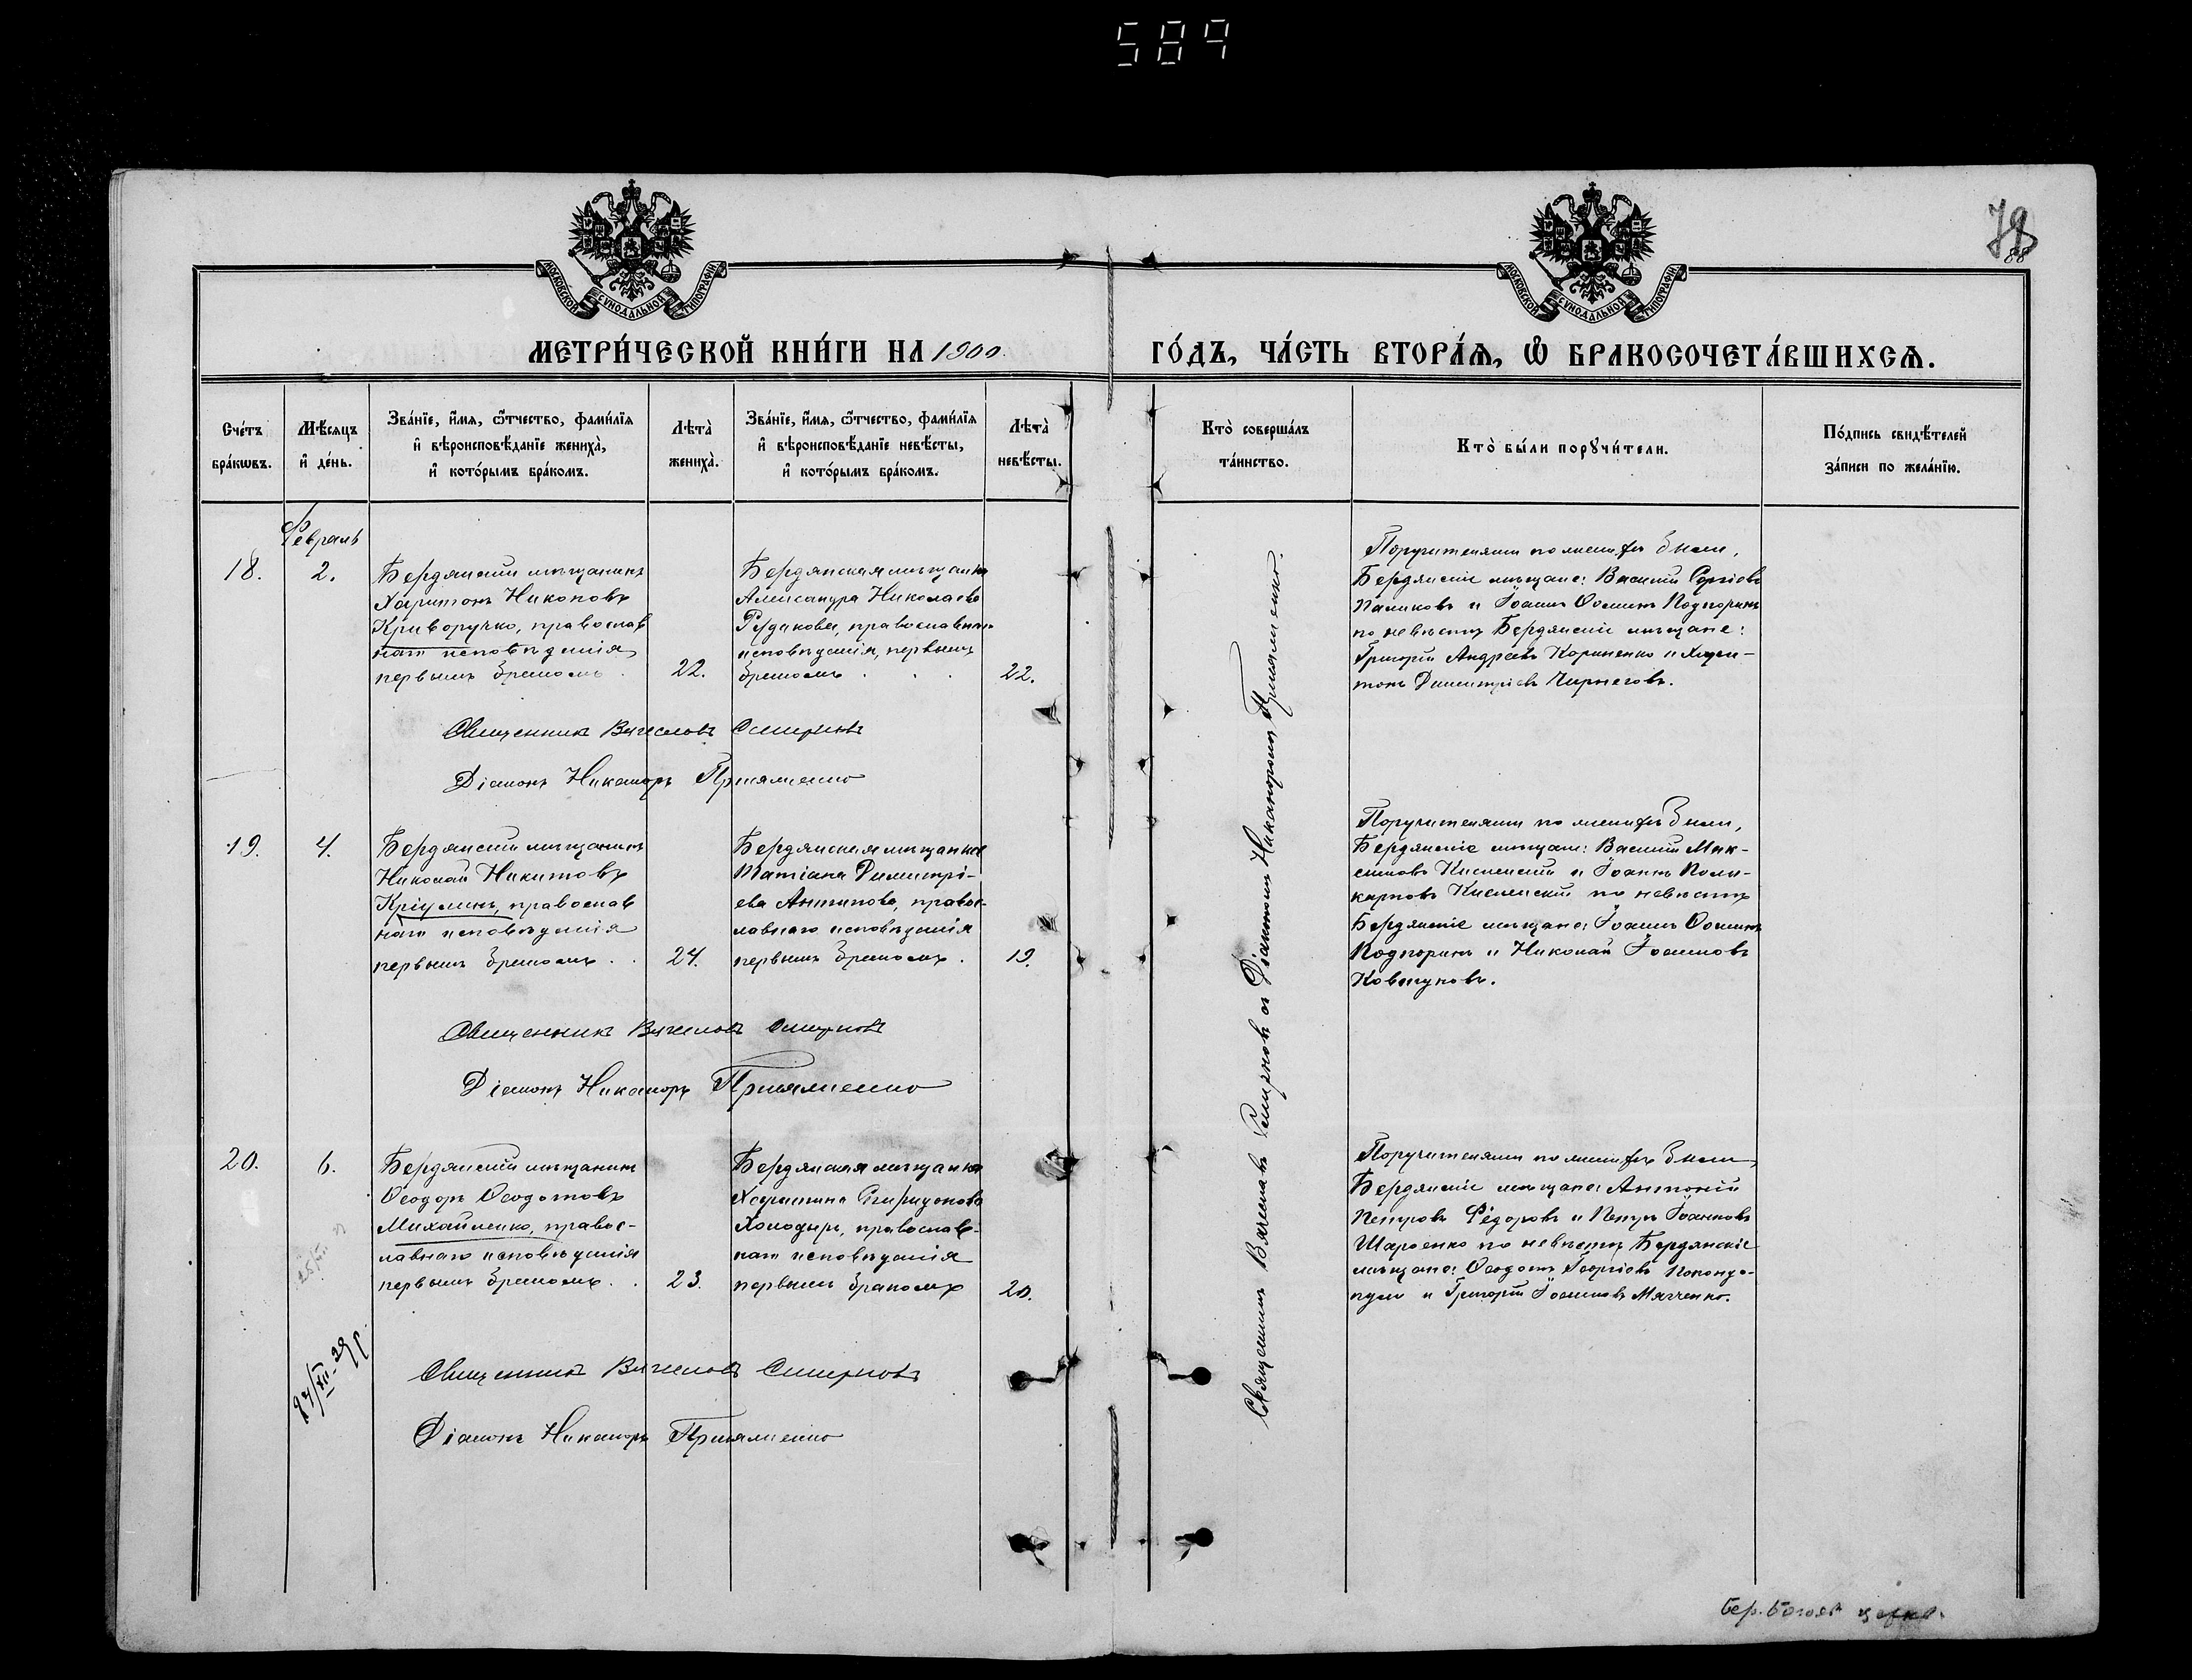 589
МОСКОВСКОЙ СѴНОДАЛЬНОЙ ТИПОГРАФІИ
МОСКОВСКОЙ СѴНОДАЛЬНОЙ ТИПОГРАФІИ
МЕТРИ́ЧЕСКОЙ КНИ́ГИ НА 1900
ГО́ДЪ, ЧА́СТЬ ВТОРА́Я, Ѽ БРАКОСОЧЕТА́ВШИХСЯ.
Сче́тъ бра́кѡвъ.
Мѣ́сяцъ и҆ де́нь.
Зва́нїе, и҆́мя, ѻ҆́тчество, фами́лїя
и҆ вѣроисповѣ́данїе жениха̀,
и҆ кото́рымъ бра́комъ.
Лѣта̀ жениха̀.
Зва́нїе, и҆́мя, ѻ҆́тчество, фами́лїя
и҆ вѣроисповѣ́данїе невѣ́сты,
и҆ кото́рымъ бра́комъ.
Лѣта̀ невѣ́сты.
Кто̀ соверша́лъ та́инство.
Кто̀ бы́ли порꙋчи́тели.
По́дпись свидѣ́телей за́писи по жела́нїю.
Февраль
18.
2.
Бердянскій мѣщанинъ
Харитонъ Никоновъ
Криворучко, православ
наго исповѣданія
первымъ бракомъ
22.
Бердянская мѣщанка
Александра Николаева
Рудакова, православнаго
исповѣданія, первымъ
бракомъ
22.
Поручителями по женихѣ были,
Бердянскіе мѣщане: Василій Сергіевъ
Паликовъ и Іоаннъ Ѳоминъ Подгоринъ
по невѣстѣ Бердянскіе мѣщане:
Григорій Андреевъ Кориненко и Хари-
тонъ Димитріевъ Чирнеговъ.
Священникъ Вячеславъ Смирновъ
Діаконъ Никаноръ
19.
4.
Бердянскій мѣщанинъ
Николай Никитовъ
Кріулинъ, православ
наго исповѣданія
первымъ бракомъ
24.
Бердянская мѣщанка
Татіана Димитрі-
ева Антипова, правос-
лавнаго исповѣданія
первымъ бракомъ
19.
Поручителями по женихѣ были,
Бердянскіе мѣщане: Василій Мак-
симовъ Кисленскій и Іоаннъ Поли-
карповъ Кисленскій по невѣстѣ
Бердянскіе мѣщане: Іоаннъ Ѳоминъ
Подгоринъ и Николай Іоанновъ
Ковтуновъ.
Священникъ Вячеславъ Смирновъ
Діаконъ Никаноръ
20.
6.
Бердянскій мѣщанинъ
Ѳеодоръ Ѳеодотовъ
Михайленко, правос-
лавнаго исповѣданія
первымъ бракомъ
23.
Бердянская мѣщанка
Харитина Спиридонова
Холодырь, православ-
наго исповѣданія
первымъ бракомъ
20.
Поручителями по женихѣ были,
Бердянскіе мѣщане: Антоній
Петровъ Фёдоровъ и Петръ Іоанновъ
Шароенко по невѣстѣ Бердянскіе
мѣщане: Ѳеодотъ Георгіевъ
и Григорій Іоанновъ Мягченко.
Священникъ Вячеславъ Смирновъ
Діаконъ Никаноръ
Священникъ Вячеславъ Смирновъ съ Діакономъ Никаноромъ
Бер. Богояв церкв.